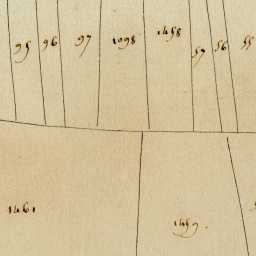 95 96 97 1098 1458 57 56 55
1461 1459.